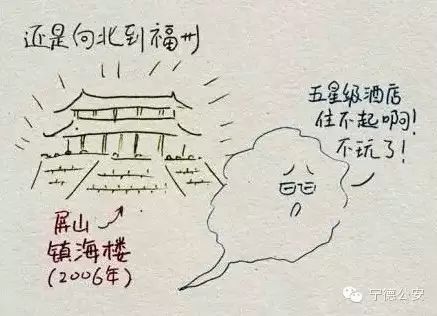 还是向北到福州
五星级酒店
住不起啊！
不玩了！
屏山
镇海楼
(2006年)
宁德公安